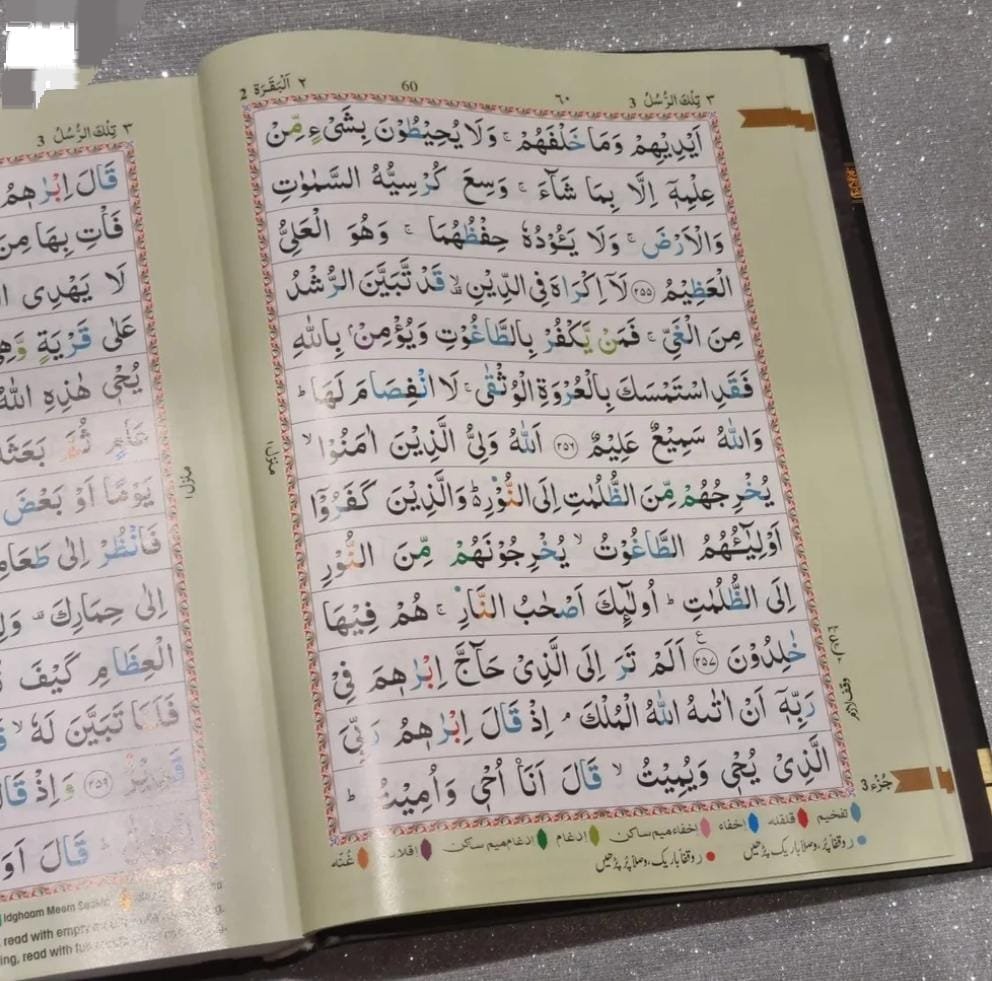 ٣ تِلْكَ الرُّسُلُ 3
٦٠
60
٢ اَلْبَقَرَة 2
اَيْدِيْهِمْ وَمَا خَلْفَهُمْ ۚ وَلَا يُحِيْطُوْنَ بِشَيْءٍ مِّنْ
عِلْمِهٖٓ اِلَّا بِمَا شَآءَ ۚ وَسِعَ كُرْسِيُّهُ السَّمٰوٰتِ
وَالْاَرْضَ ۚ وَلَا يَـُٔوْدُهٗ حِفْظُهُمَا ۚ وَهُوَ الْعَلِيُّ
الْعَظِيْمُ ﴿٢٥٥﴾ لَآ اِكْرَاهَ فِي الدِّيْنِ ۙ قَدْ تَّبَيَّنَ الرُّشْدُ
مِنَ الْغَيِّ ۚ فَمَنْ يَّكْفُرْ بِالطَّاغُوْتِ وَيُؤْمِنْۢ بِاللّٰهِ
فَقَدِ اسْتَمْسَكَ بِالْعُرْوَةِ الْوُثْقٰى ۚ لَا انْفِصَامَ لَهَا ؕ
وَاللّٰهُ سَمِيْعٌ عَلِيْمٌ ﴿٢٥٦﴾ اَللّٰهُ وَلِيُّ الَّذِيْنَ اٰمَنُوْا ۙ
يُخْرِجُهُمْ مِّنَ الظُّلُمٰتِ اِلَى النُّوْرِ ؕ وَالَّذِيْنَ كَفَرُوْٓا
اَوْلِيٰٓـُٔهُمُ الطَّاغُوْتُ ۙ يُخْرِجُوْنَهُمْ مِّنَ النُّوْرِ
اِلَى الظُّلُمٰتِ ؕ اُولٰٓئِكَ اَصْحٰبُ النَّارِ ۚ هُمْ فِيْهَا
خٰلِدُوْنَ ﴿٢٥٧﴾ ع اَلَمْ تَرَ اِلَى الَّذِيْ حَآجَّ اِبْرٰهٖمَ فِيْ
رَبِّهٖٓ اَنْ اٰتٰىهُ اللّٰهُ الْمُلْكَ ۘ اِذْ قَالَ اِبْرٰهٖمُ رَبِّيَ
الَّذِيْ يُحْيٖ وَيُمِيْتُ ۙ قَالَ اَنَا۠ اُحْيٖ وَاُمِيْتُ ؕ
منزل
وقف لازم
جُزْء 3
تفخیم قلقلہ إخفاء إخفاء میم ساکن إدغام إدغام میم ساکن إقلاب غُنّه
ر وقفاً پُر، وصلاً باریک پڑھیں ر وقفاً باریک، وصلاً پُر پڑھیں
٣ تِلْكَ الرُّسُلُ 3
قَالَ اِبْرٰهٖمُ
فَاْتِ بِهَا مِنَ
لَا يَهْدِي
عَلٰى قَرْيَةٍ
يُحْيٖ هٰذِهِ اللّٰهُ
ثُمَّ بَعَثَ
يَوْمًا اَوْ بَعْضَ
فَانْظُرْ اِلٰى
اِلٰى حِمَارِكَ
الْعِظَامِ كَيْفَ
فَلَمَّا تَبَيَّنَ لَهٗ ۙ
﴿٢٥٩﴾ وَاِذْ قَالَ
قَالَ
منزل
Idghaam Meem Saakin
read with
ing, read with